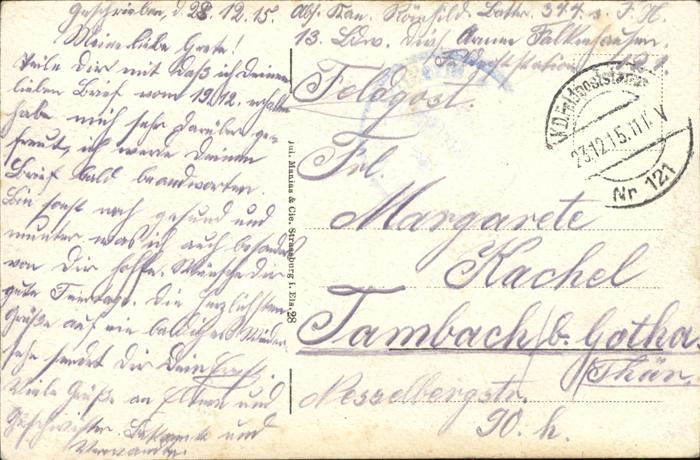 Geschrieben, d. 23.12.15.
Meine liebe Grete!
Teile Dir mit daß ich Deinen
lieben Brief vom 19.12. erhalten
habe mich sehr darüber ge-
freut, ich werde Deinen
Brief bald beantworten.
Bin sonst noch gesund und
munter was ich auch besonders
von Dir hoffe. Wünsche Dir
gute Feiertage. Die herzlichsten
Grüße auf ein baldiges Wieder
sehn sendet Dir Dein Ernst.
Viele Grüße an Eltern und
Geschwister. Bekannte und
Verwandte.
Jul. Manias & Cie. Strassburg i. Els. 28
Abs. Kan. Römhild. Battr. 344. s. F. H.
13. Ldw. Div. Armee Falkenhausen.
Feldpoststation No. 121
Feldpost.
K.D. Feldpoststation
23.12.15. 11-12 V
Nr 121
Frl.
Margarete
Kachel
Tambach b. Gotha.
Thür.
Nesselbergstr.
90. h.